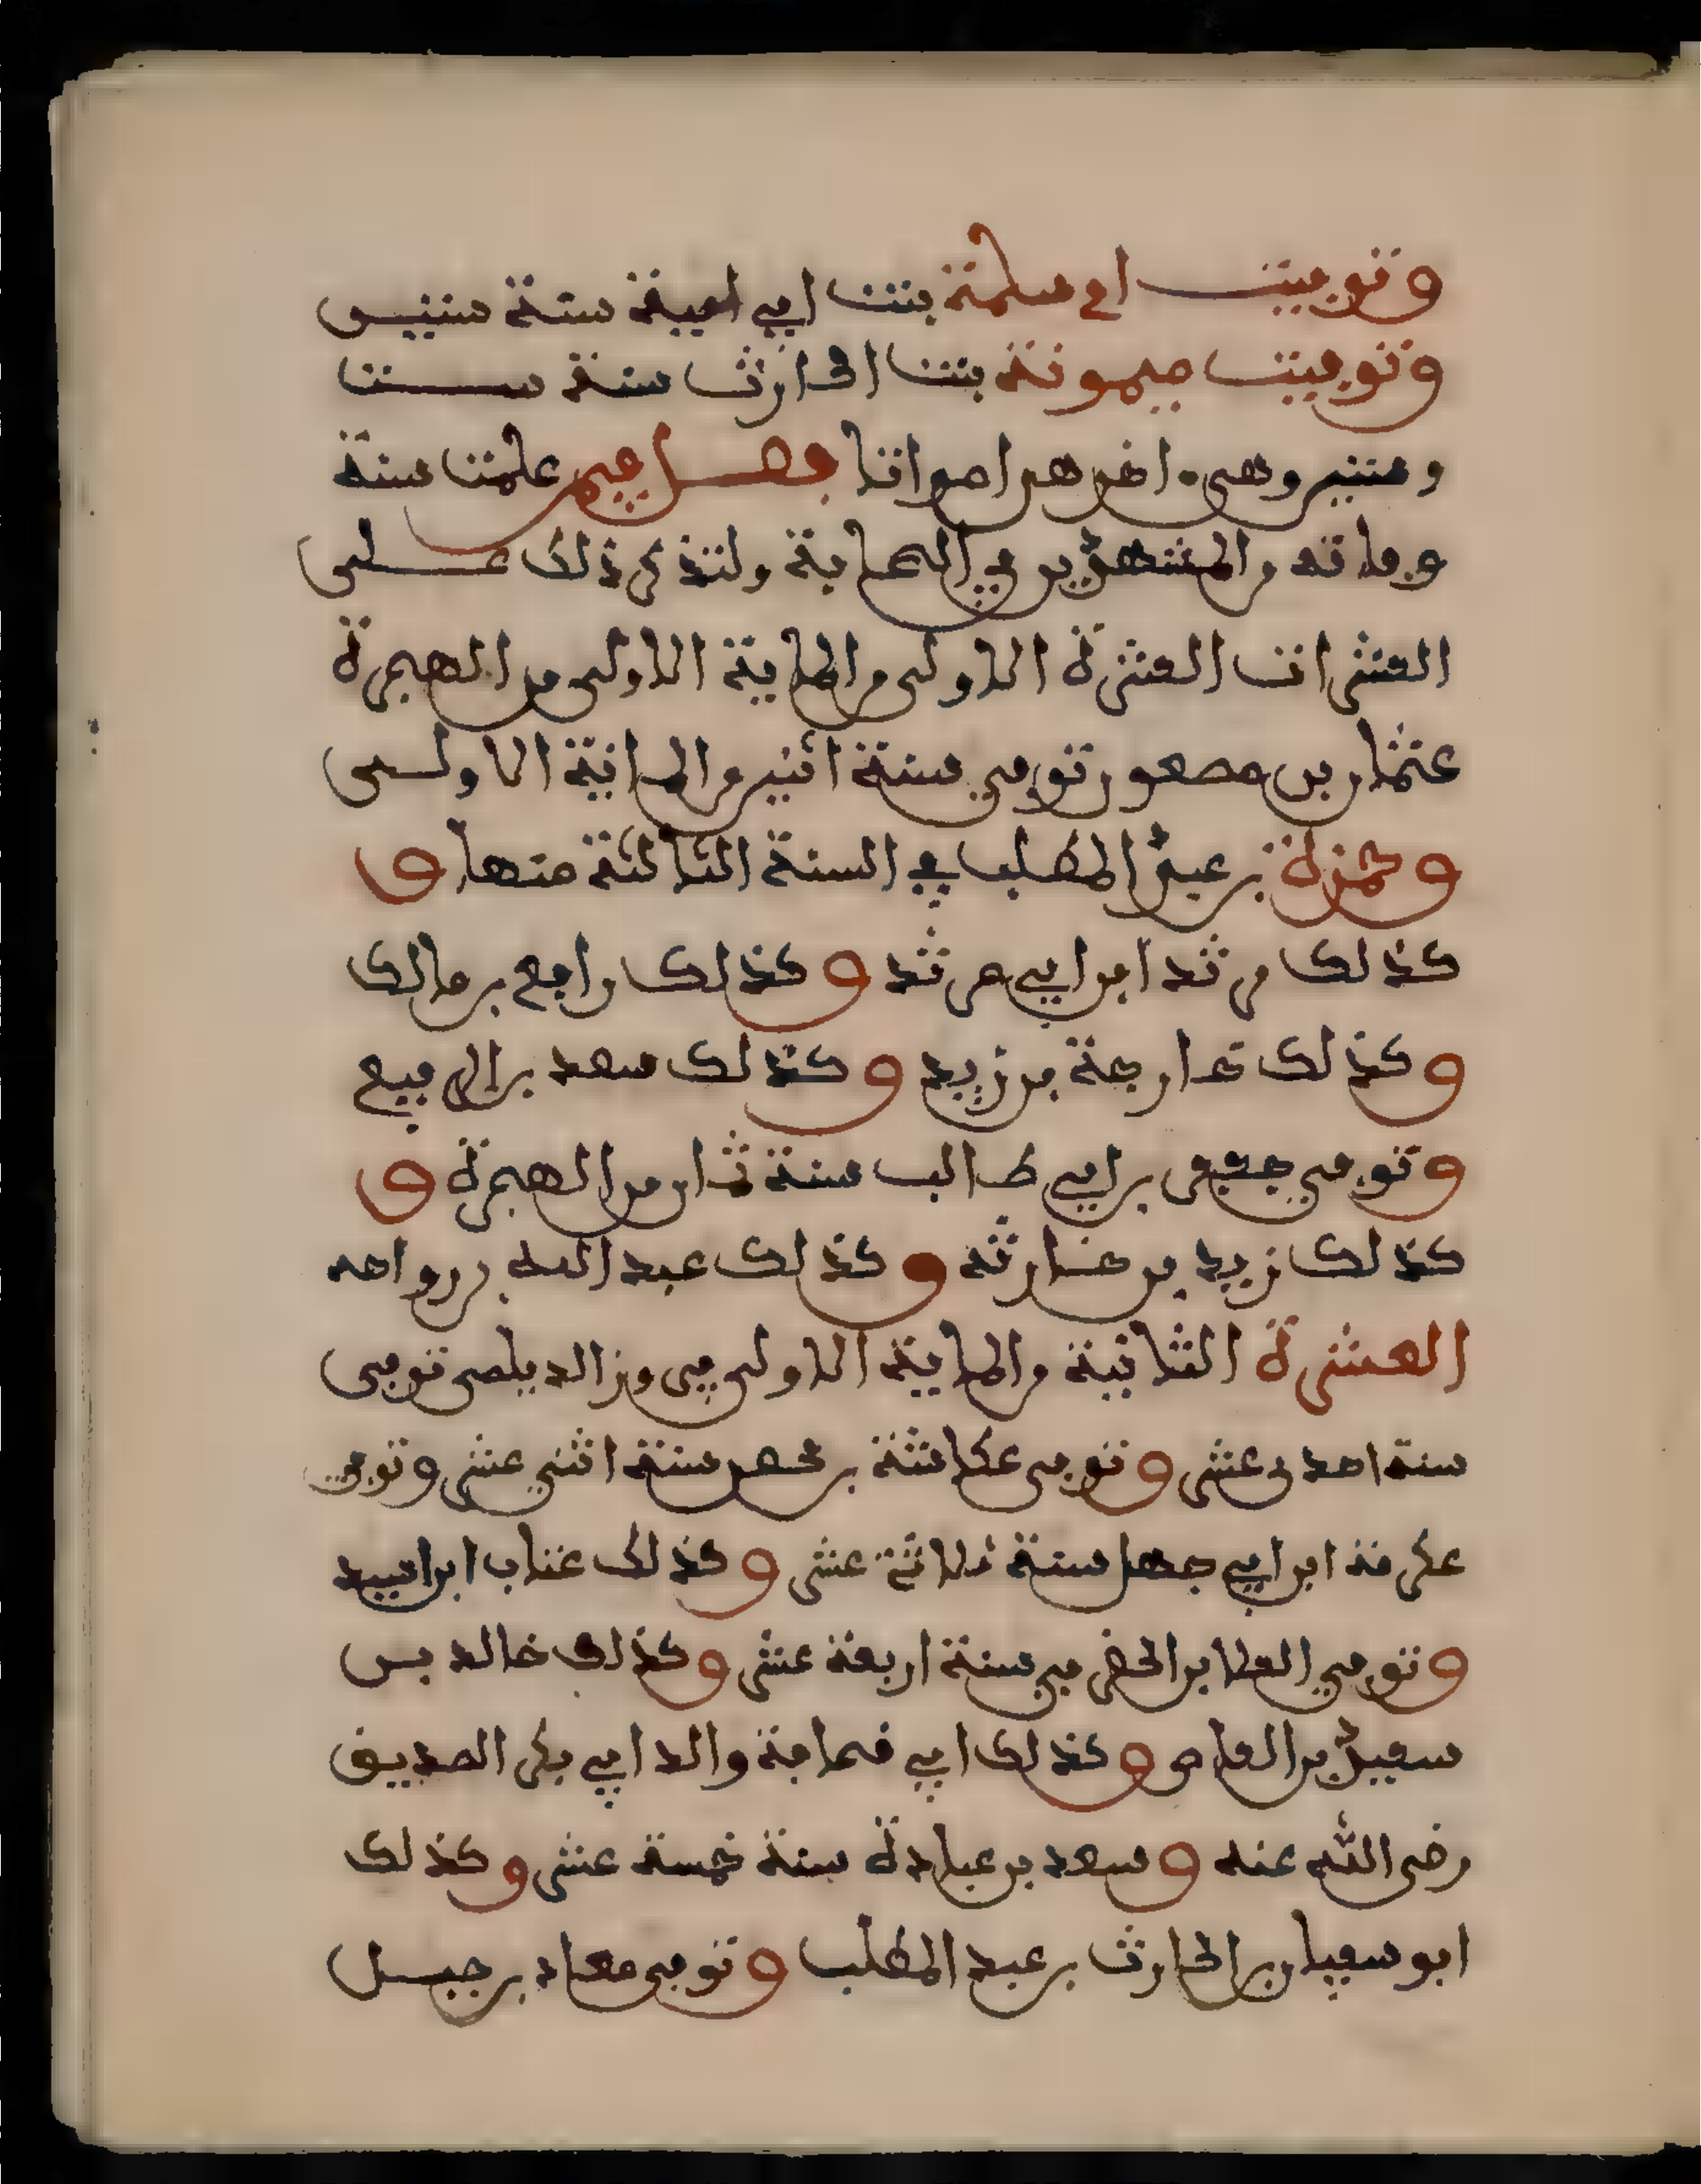 وتوفيت ام سلمة بنت ابي امية ستة ستين
وتوفيت ميمونة بنت الحارث سنة ست
وستين وهي اخرهن امواتا فصل فيمن علمت سنة
وفاته من المشهورين في الصحابة ولنذكر ذلك على
العشرات العشرة الاولى من الماية الاولى من الهجرة
عثمان بن مصعون توفي سنة اثنين من الماية الاولى
وحمزة بن عبد المطلب في السنة الثالثة منها و
كذلك مرثد ابن ابي مرثد وكذلك رافع بن مالك
وكذلك خارجة بن زيد وكذلك سعد بن الربيع
وتوفي جعفر بن ابي طالب سنة ثمان من الهجرة و
كذلك زيد بن حارثه وكذلك عبد الله بن رواحه
العشرة الثانية من الماية الاولى فيروز الديلمي توفي
سنة احدى عشر وتوفي عكاشة بن محصن سنة اثني عشر وتوفي
عكرمة ابن ابي جهل سنة ثلاثة عشر وكذلك عتاب ابن اسيد
وتوفي العلا بن الحضرمي سنة اربعة عشر وكذلك خالد بن
سعيد بن العاص وكذلك ابي قحافة والد ابي بكر الصديق
رضي الله عنه وسعد بن عبادة سنة خمسة عشر وكذلك
ابو سفيان بن الحارث بن عبد المطلب وتوفي معاد بن جبل